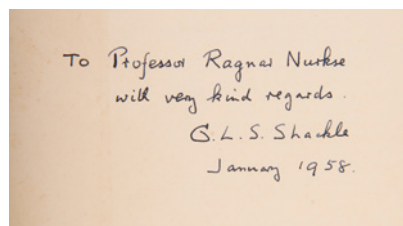 To Professor Ragnar Nurkse
with very kind regards.
G. L. S. Shackle
January 1958.